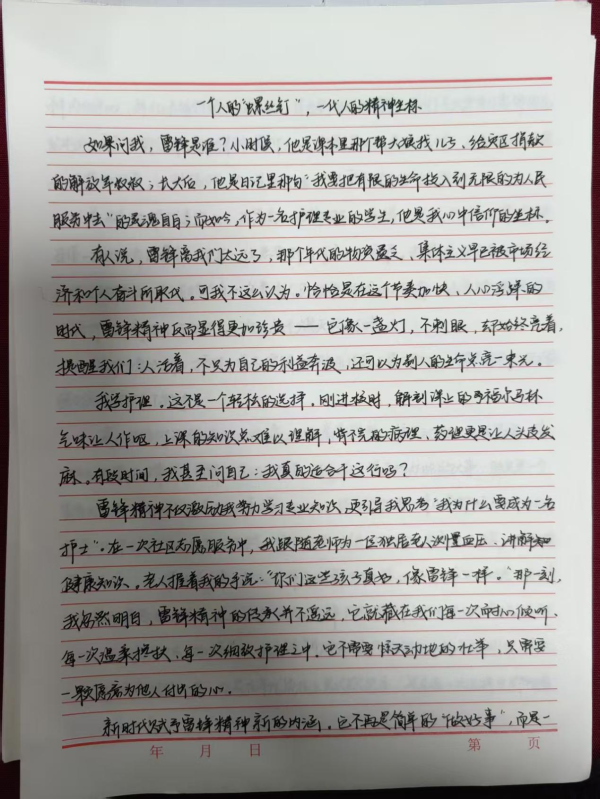 一个人的"螺丝钉"，一代人的精神坐标
如果问我，雷锋是谁？小时候，他是课本里那个帮大娘找儿子、给灾区捐款
的解放军叔叔；长大后，他是日记里那句"我要把有限的生命投入到无限的为人民
服务中去"的灵魂自白；而如今，作为一名护理专业的学生，他是我心中信仰的坐标。
有人说，雷锋离我们太远了，那个年代的物资匮乏、集体主义早已被市场经
济和个人奋斗所取代。可我不这么认为。恰恰是在这个节奏加快、人心浮躁的
时代，雷锋精神反而显得更加珍贵——它像一盏灯，不刺眼，却始终亮着，
提醒我们：人活着，不只为自己的利益奔波，还可以为别人的生命点亮一束光。
我学护理。这不是一个轻松的选择。刚进校时，解剖课上的福尔马林
气味让人作呕，上课的知识点难以理解，背不完的病理、药理更是让人头皮发
麻。有段时间，我甚至问自己：我真的适合干这行吗？
雷锋精神不仅激励我努力学习专业知识，更引导我思考"我为什么要成为一名
护士"。在一次社区志愿服务中，我跟随老师为一区独居老人测量血压、讲解
健康知识。老人握着我的手说："你们这些孩子真好，像雷锋一样。"那一刻，
我忽然明白，雷锋精神的传承并不遥远，它就藏在我们每一次耐心倾听、
每一次温柔搀扶、每一次细致护理之中。它不需要惊天动地的壮举，只需要
一颗愿意为他人付出的心。
新时代赋予雷锋精神新的内涵。它不再是简单的"做好事"，而是一
年 月 日 第 页